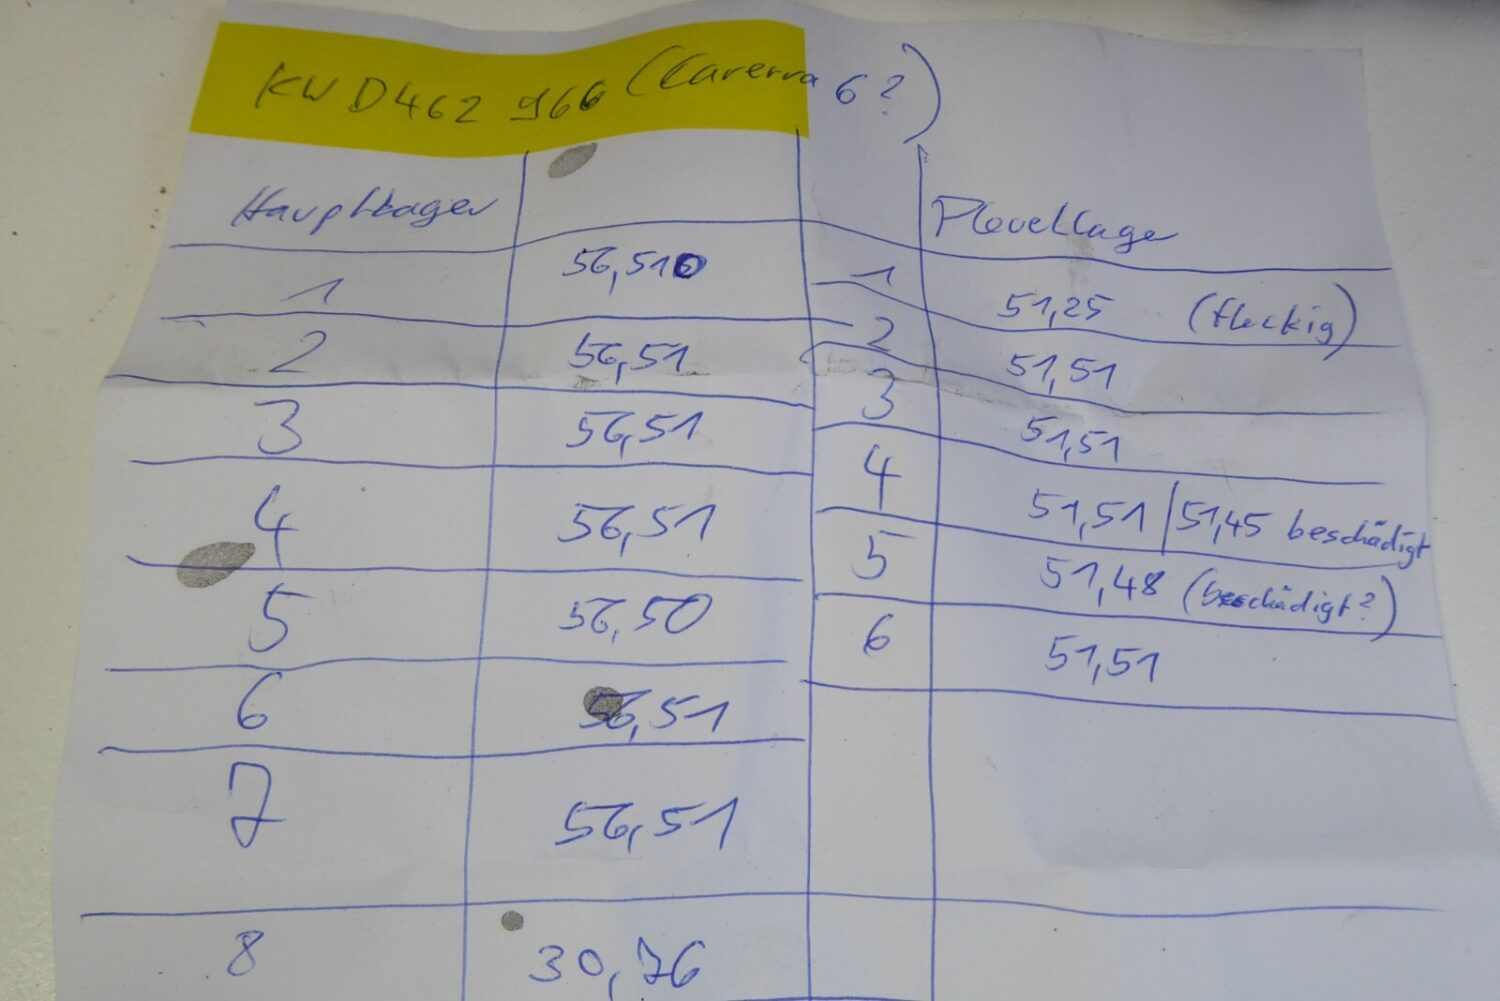 KW D462 966 (Carerra 6?)
Hauptlager Pleuellager
1 56,510 1 51,25 (fleckig)
2 56,51 2 51,51
3 56,51 3 51,51
4 56,51 4 51,51 | 51,45 beschädigt
5 56,50 5 51,48 (beschädigt?)
6 56,51 6 51,51
7 56,51
8 30,76